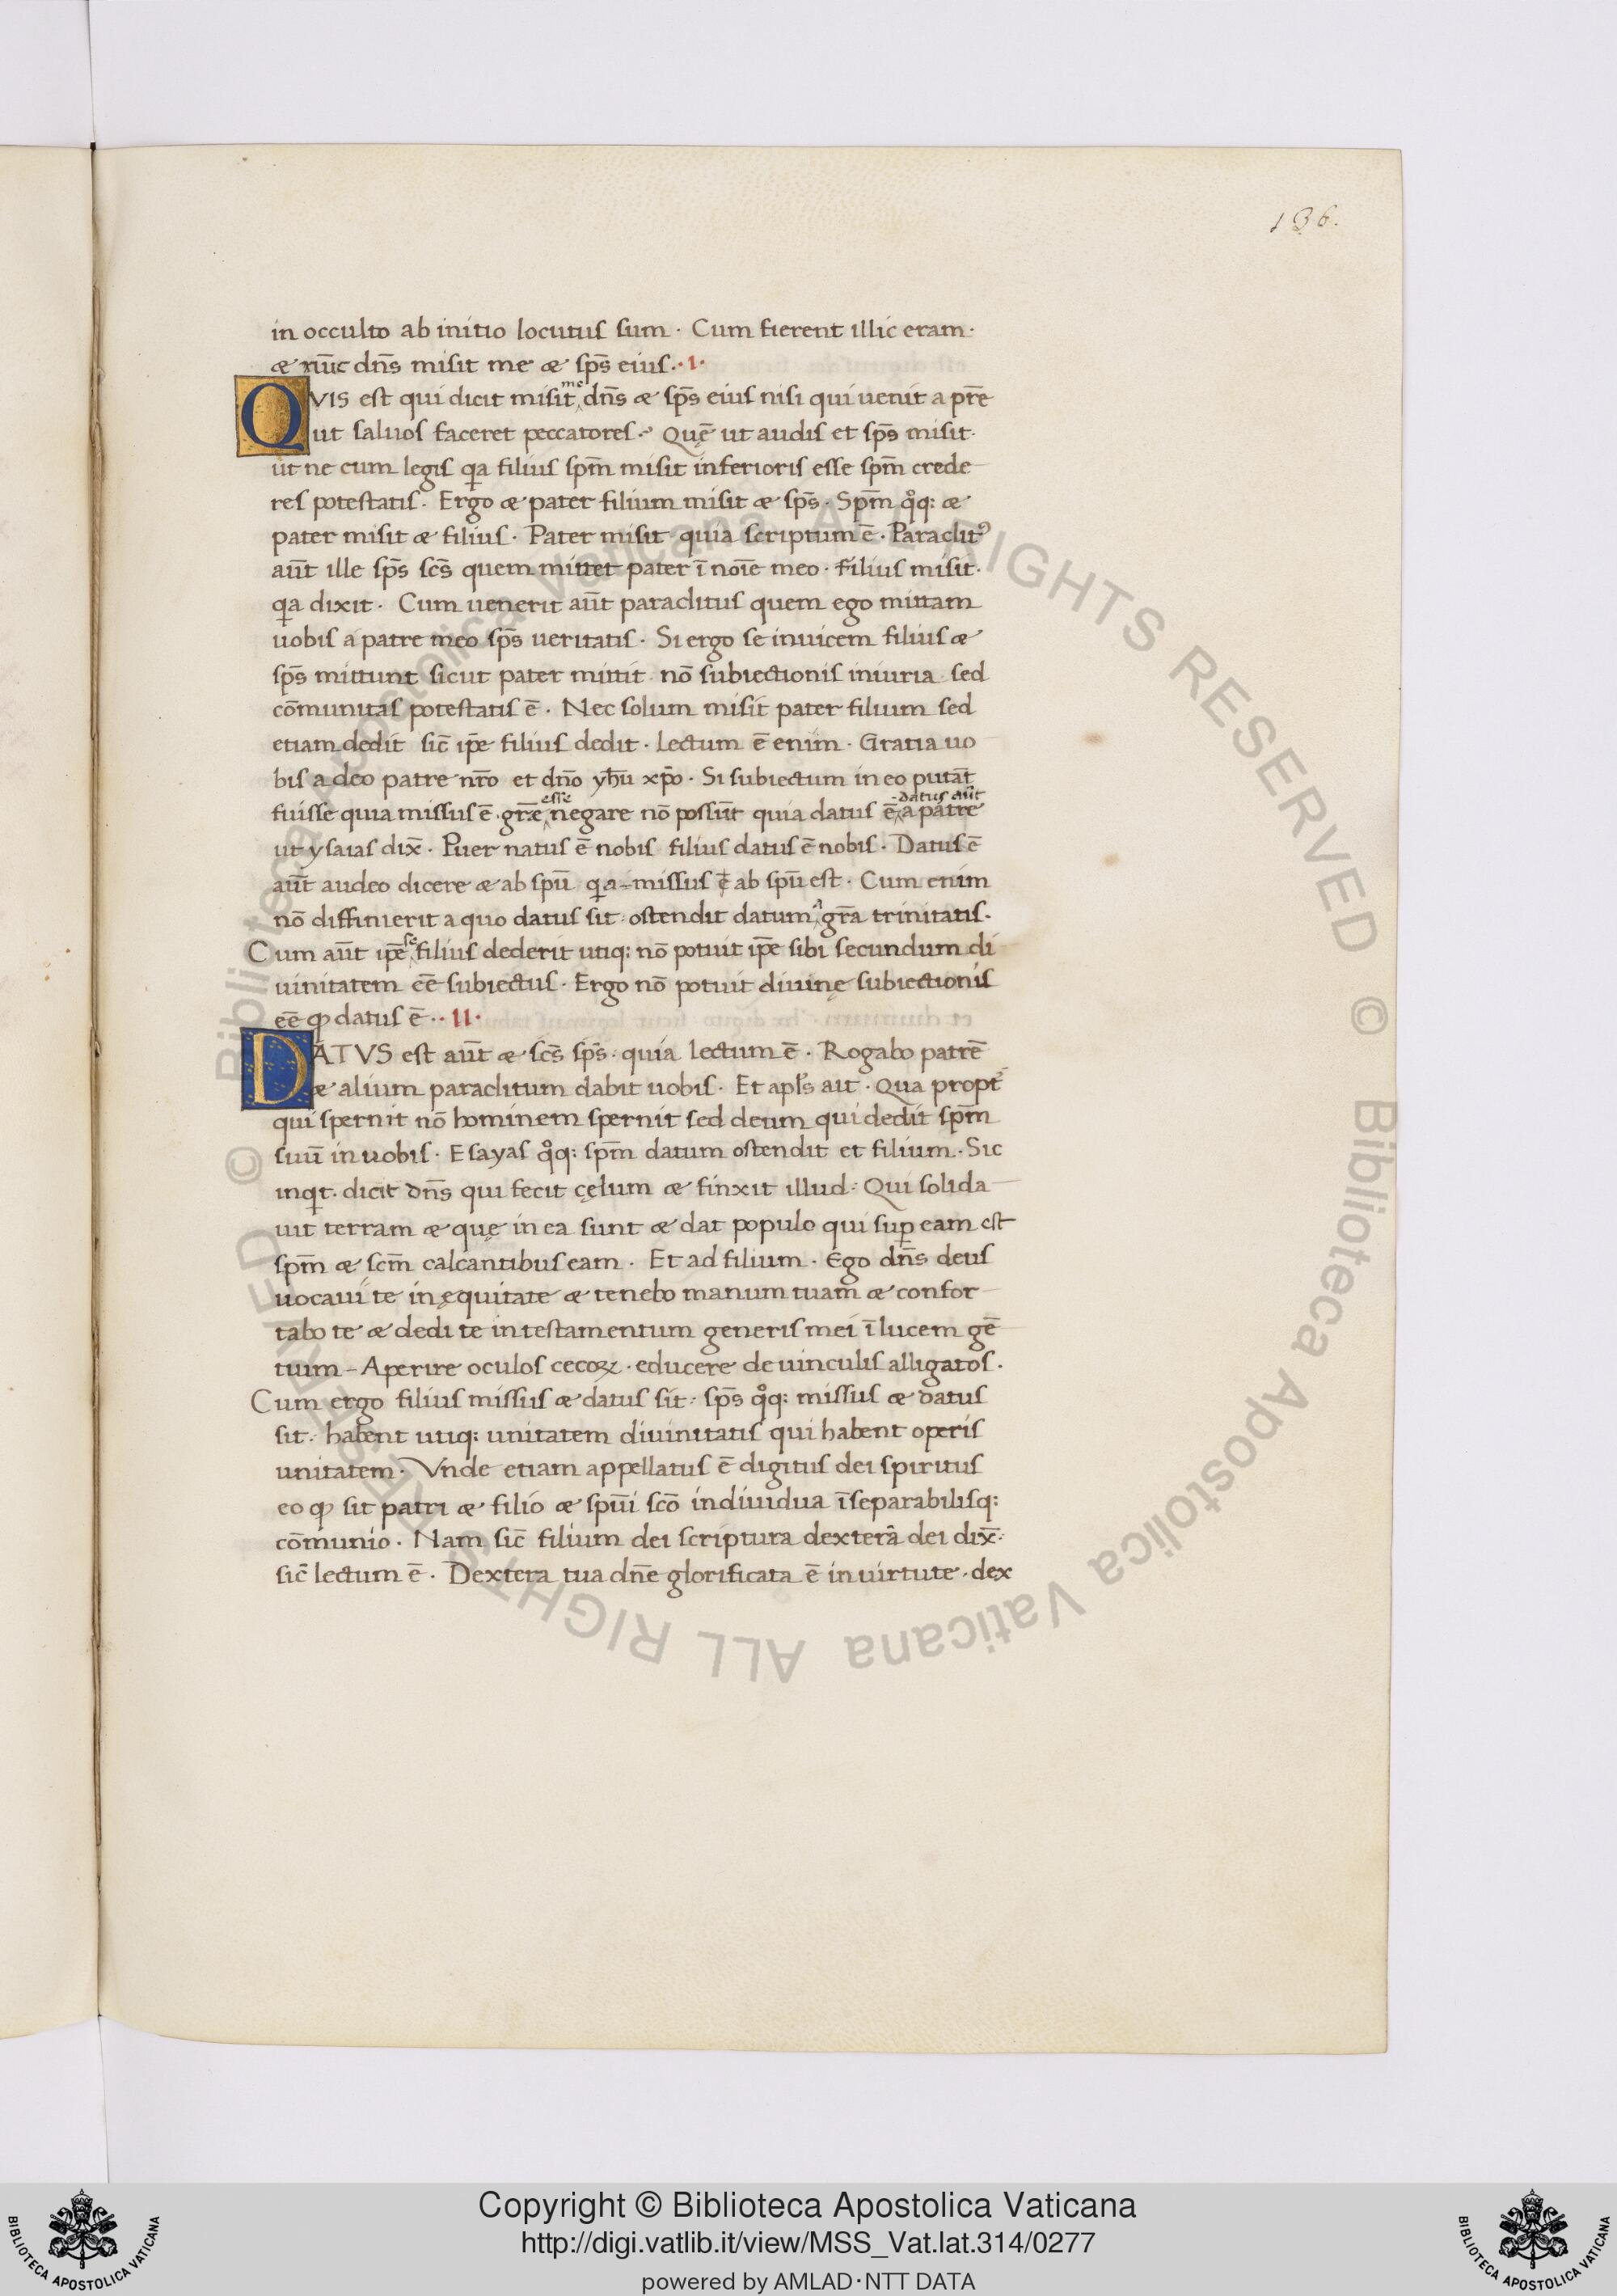 136.
in occulto ab initio locutus sum · Cum fierent illic eram ·
æ nūc dn̄s misit me æ sp̄s eius · · I ·
QVIS est qui dicit misit me dn̄s æ sp̄s eius nisi qui uenit a pr̄e
ut saluos faceret peccatores · Quę̄ ut audis et sp̄s misit ·
ut ne cum legis qa filius sp̄m misit inferioris esse sp̄m crede
res potestatis · Ergo æ pater filium misit æ sp̄s · Sp̄m qͦq: æ
pater misit æ filius · Pater misit quia scriptum ē · Paraclitꝰ
aūt ille sp̄s sc̄s quem mittet pater ī noīe meo · filius misit ·
qa dixit · Cum uenerit aūt paraclitus quem ego mittam
uobis a patre meo sp̄s ueritatis · Si ergo se inuicem filius æ
sp̄s mittunt sicut pater mittit nō subiectionis iniuria sed
cōmunitas potestatis ē · Nec solum misit pater filium sed
etiam dedit sic̄ ip̄e filius dedit · Lectum ē enim · Gratia uo
bis a deo patre nr̄o et dn̄o yħu xp̄o · Si subiectum in eo putāt
fuisse quia missus ē · gr̄æ esse negare nō possūt quia datus ē datus aūt a patre
ut ysaias dix̄ · Puer natus ē nobis filius datus ē nobis · Datus ē
aūt audeo dicere æ ab spū qa missus ē ab spū est · Cum enim
nō diffinierit a quo datus sit · ostendit datum gr̄a trinitatis ·
Cum aūt ip̄e se filius dederit utiq: nō potuit ip̄e sibi secundum di
uinitatem eē subiectus · Ergo nō potuit diuinę subiectionis
eē ꝙ datus ē · · II ·
DATVS est aūt æ sc̄s sp̄s · quia lectum ē · Rogabo patrē
æ alium paraclitum dabit uobis · Et apl̄s ait · Qua propt̄
qui spernit nō hominem spernit sed deum qui dedit sp̄m
suū in uobis · Esayas qͦq: sp̄m datum ostendit et filium · Sic
inqt · dicit dn̄s qui fecit cęlum æ finxit illud · Qui solida
uit terram æ quę in ea sunt æ dat populo qui suꝑ eam est
sp̄m æ sc̄m calcantibus eam · Et ad filium · Ego dn̄s deus
uocaui te in ęquitate æ tenebo manum tuam æ confor
tabo te æ dedi te in testamentum generis mei ī lucem gē
tium – Aperire oculos cecoꝝ · educere de uinculis alligatos ·
Cum ergo filius missus æ datus sit · sp̄s qͦq: missus æ datus
sit · habent utiq: unitatem diuinitatis qui habent operis
unitatem · Vnde etiam appellatus ē digitus dei spiritus
eo ꝙ sit patri æ filio æ spūi scō indiuidua īseparabilisq:
cōmunio · Nam sic̄ filium dei scriptura dexterā dei dix̄ ·
sic̄ lectum ē · Dextera tua dn̄e glorificata ē in uirtute · dex
Copyright © Biblioteca Apostolica Vaticana
http://digi.vatlib.it/view/MSS_Vat.lat.314/0277
powered by AMLAD·NTT DATA